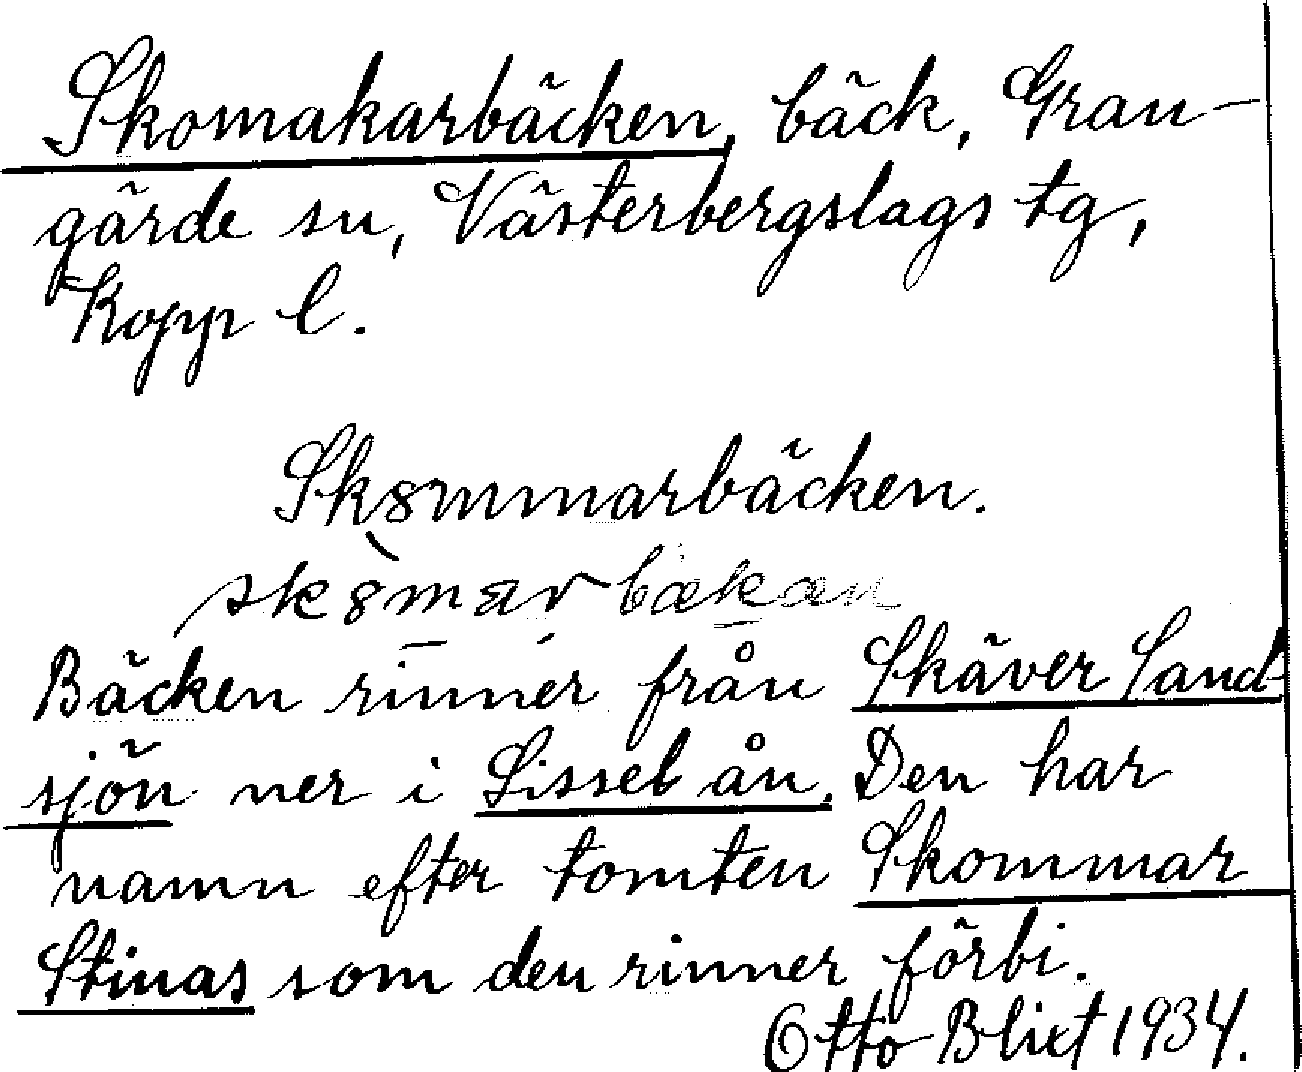 Skomakarbäcken, bäck, Gran-
gärde sn, Västerbergslags tg,
Kopp l.
Skommarbäcken.
Bäcken rinner från Skäver Sand-
sjön ner i Lissel ån. Den har
namn efter tomten Skommar
Stinas som den rinner förbi.
Otto Blixt 1934.